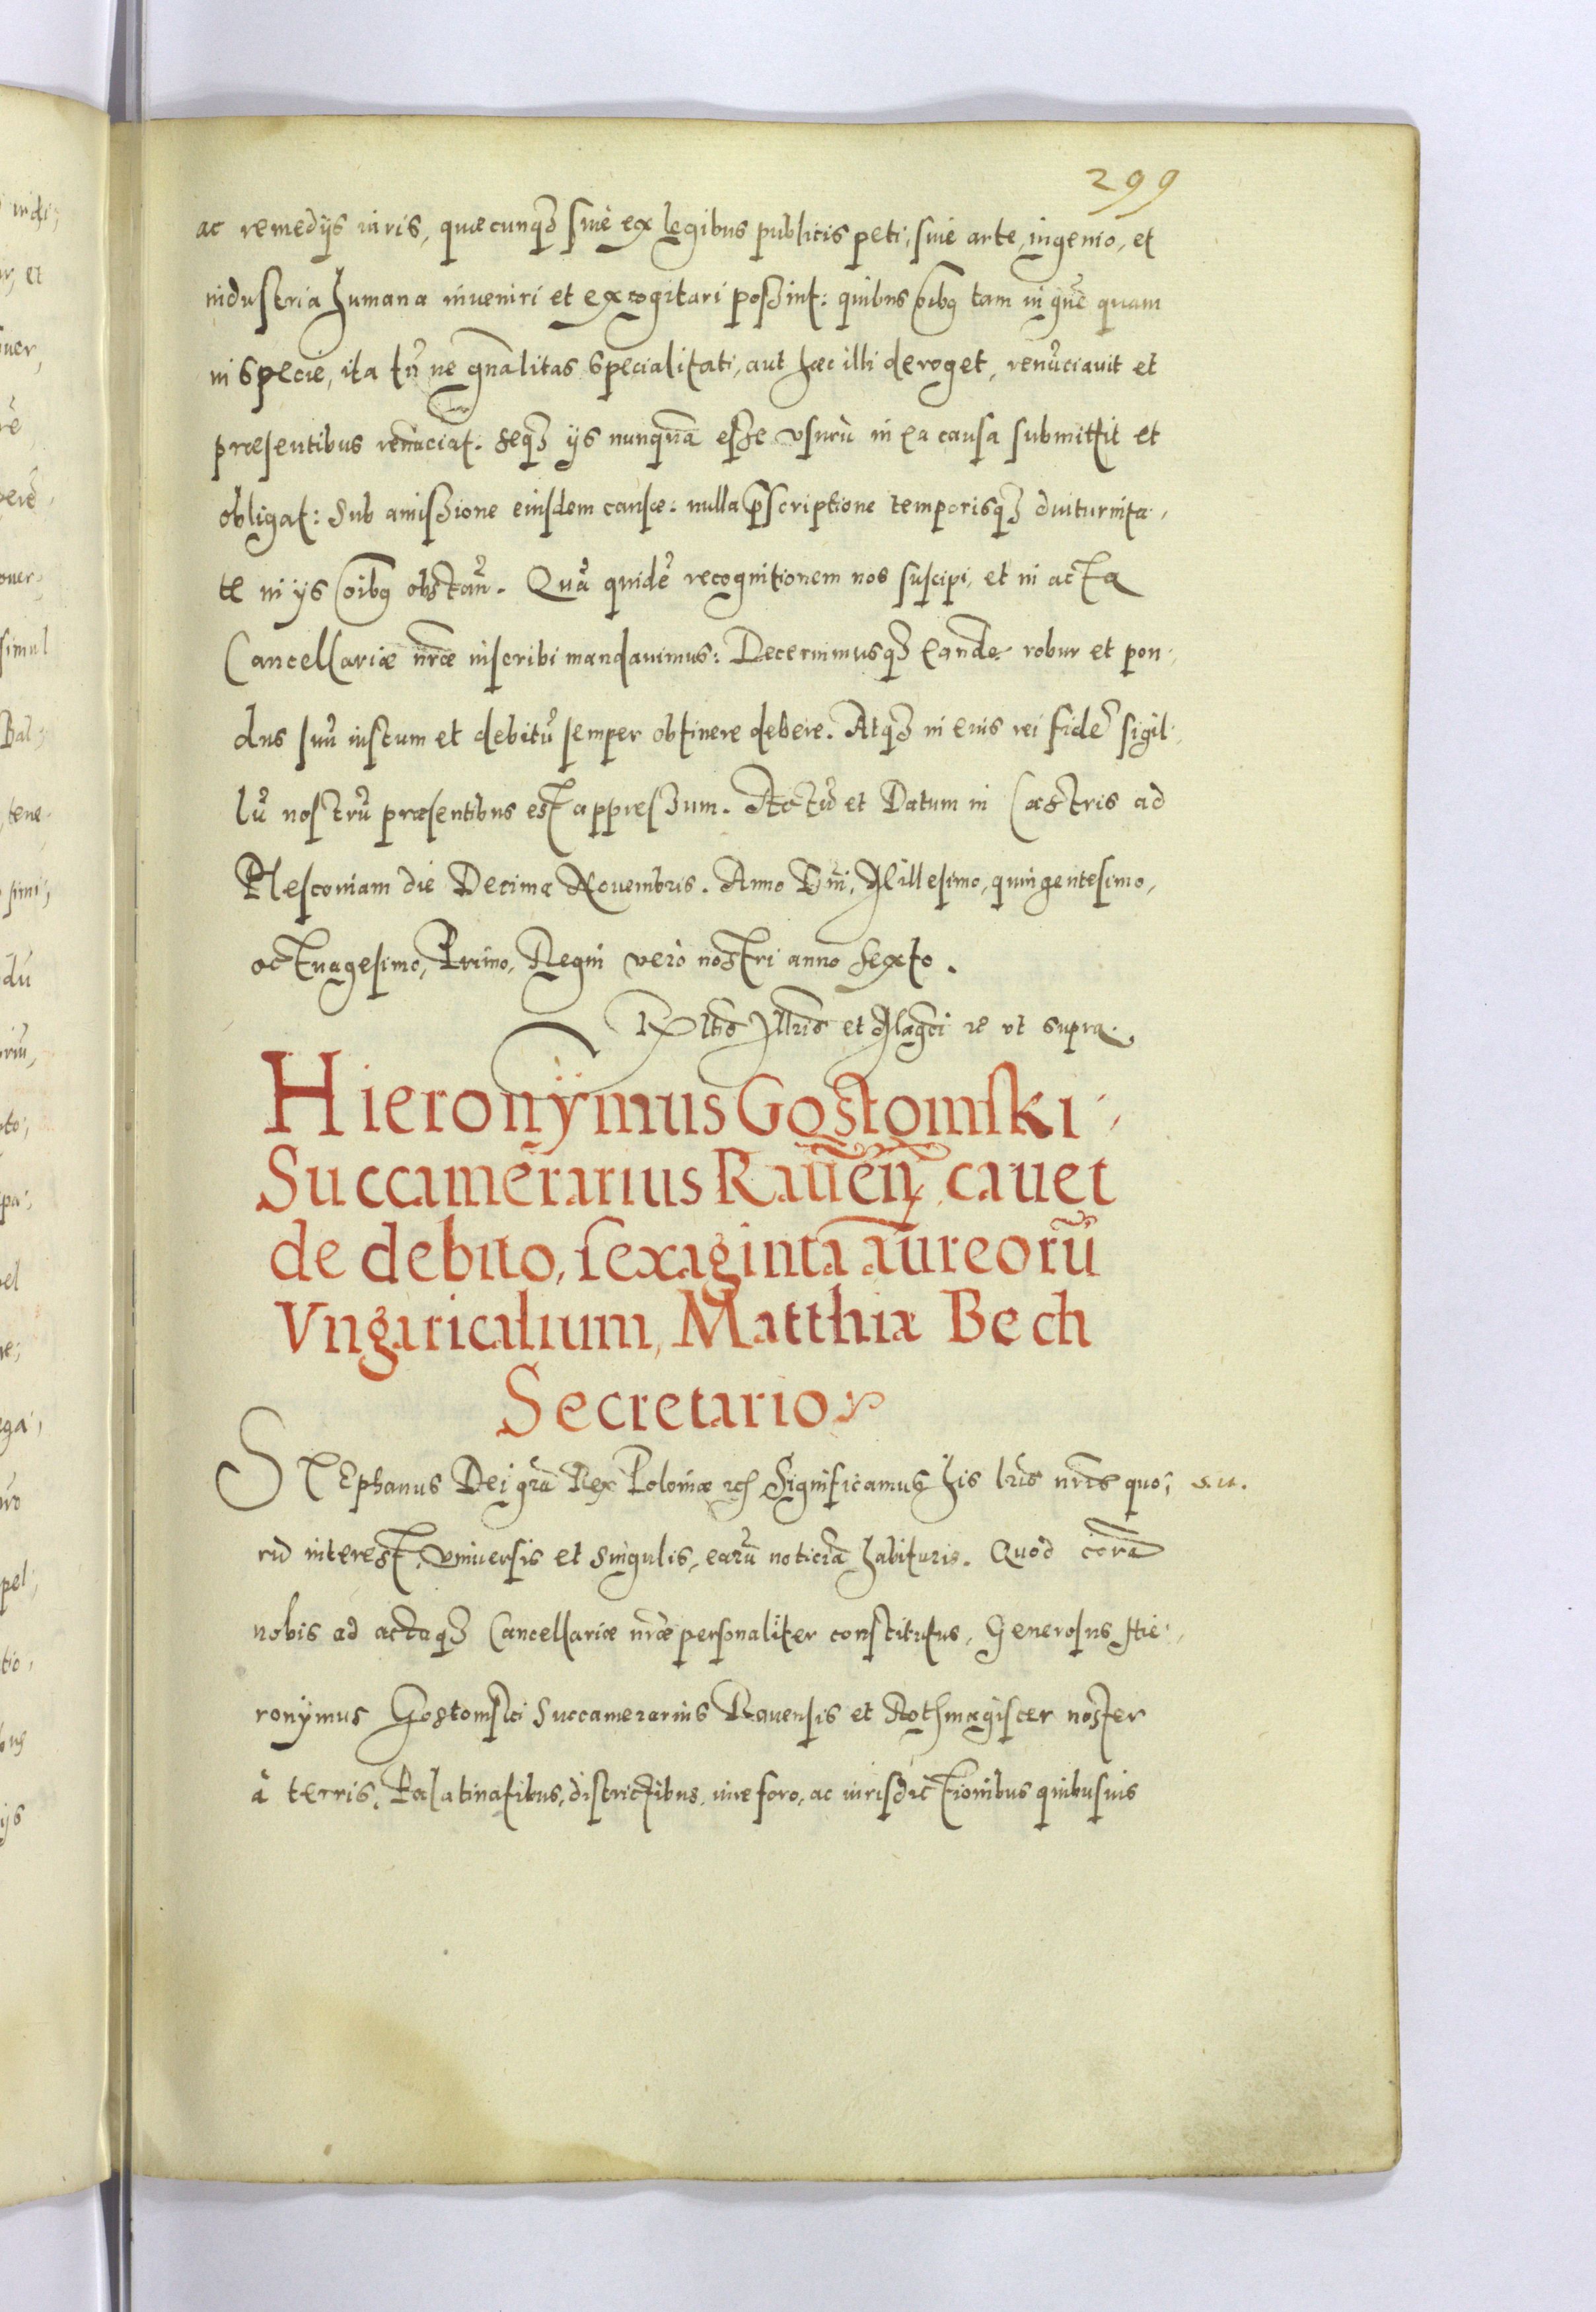 299
ac remedijs iuris, quæcunq3 siuè ex legibus publicis peti, siuè arte, ingenio, et
industria humana inueniri et excogitari possint: quibus oĩbq tam in gñe quam
in specie, ita tñ ne gñalitas specialitati, aut hæc illi deroget, renũciauit et
præsentibus renũciat. seq3 ijs nunquã esse vsurũ in ea causa submittit et
obligat: Sub amissione eiusdem causæ: nulla p̃scriptione temporisq3 diuturnita-
te in ijs oĩbq obstañ. Quã quidẽ recognitionem nos suscipi, et in acta
Cancellariæ nr̃æ inscribi mandauimus: Decernimusq3 eandẽ robur et pon-
dus suũ iustum et debitũ semper obtinere debere. Atq3 in eius rei fidẽ sigil-
lũ nostrũ præsentibus est appressum. Actũ et Datum in Castris ad
Plescouiam die Decima Nouembris. Anno Dñi, Millesimo, quingentesimo,
octuagesimo, Primo, Regni verò nostri anno sexto.
Rltio Jllris et Magci rc vt supra.
Hieronÿmus Gostomski
Succamerarius Raueñ, cauet
de debito, sexaginta aureorũ
Vngaricalium, Matthiæ Bech
Secretario
STEphanus Dei grã Rex Poloniæ rc Significamus his lr̃is nr̃is quo- s.u.
rũ interest, vniuersis et singulis, earũ noticiã habituris. Quòd corã
nobis ad actaq3 Cancellariæ nr̃æ personaliter constitutus, Generosus Hie-
ronÿmus Gostomski Succamerarius Rauensis et Rothmagister noster
à terris, Palatinatibus, districtibus, iure foro, ac iurisdictionibus quibusuis